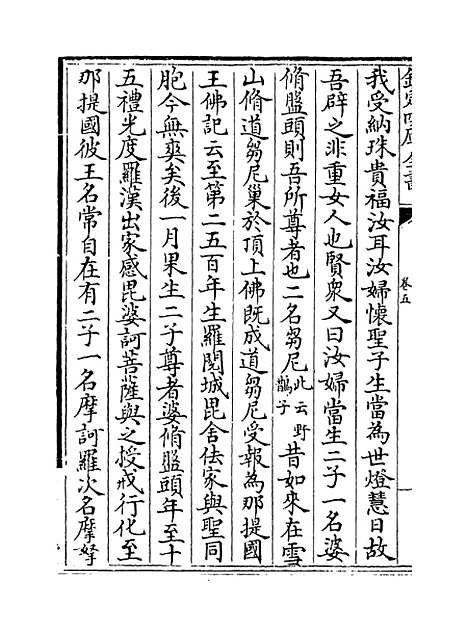 欽定四庫全書
卷五
我受納珠貴福汝耳汝婦懷聖子生當為世燈慧日故
吾辟之非重女人也賢衆又曰汝婦當生二子一名婆
脩盤頭則吾所尊者也二名芻尼此云野鵲子昔如來在雪
山脩道芻尼巢於頂上佛既成道芻尼受報為那提國
王佛記云至第二五百年生羅閱城毘舍佉家與聖同
胞今無爽矣後一月果生二子尊者婆脩盤頭年至十
五禮光度羅漢出家感毘婆訶菩薩與之授戒行化至
那提國彼王名常自在有二子一名摩訶羅次名摩拏